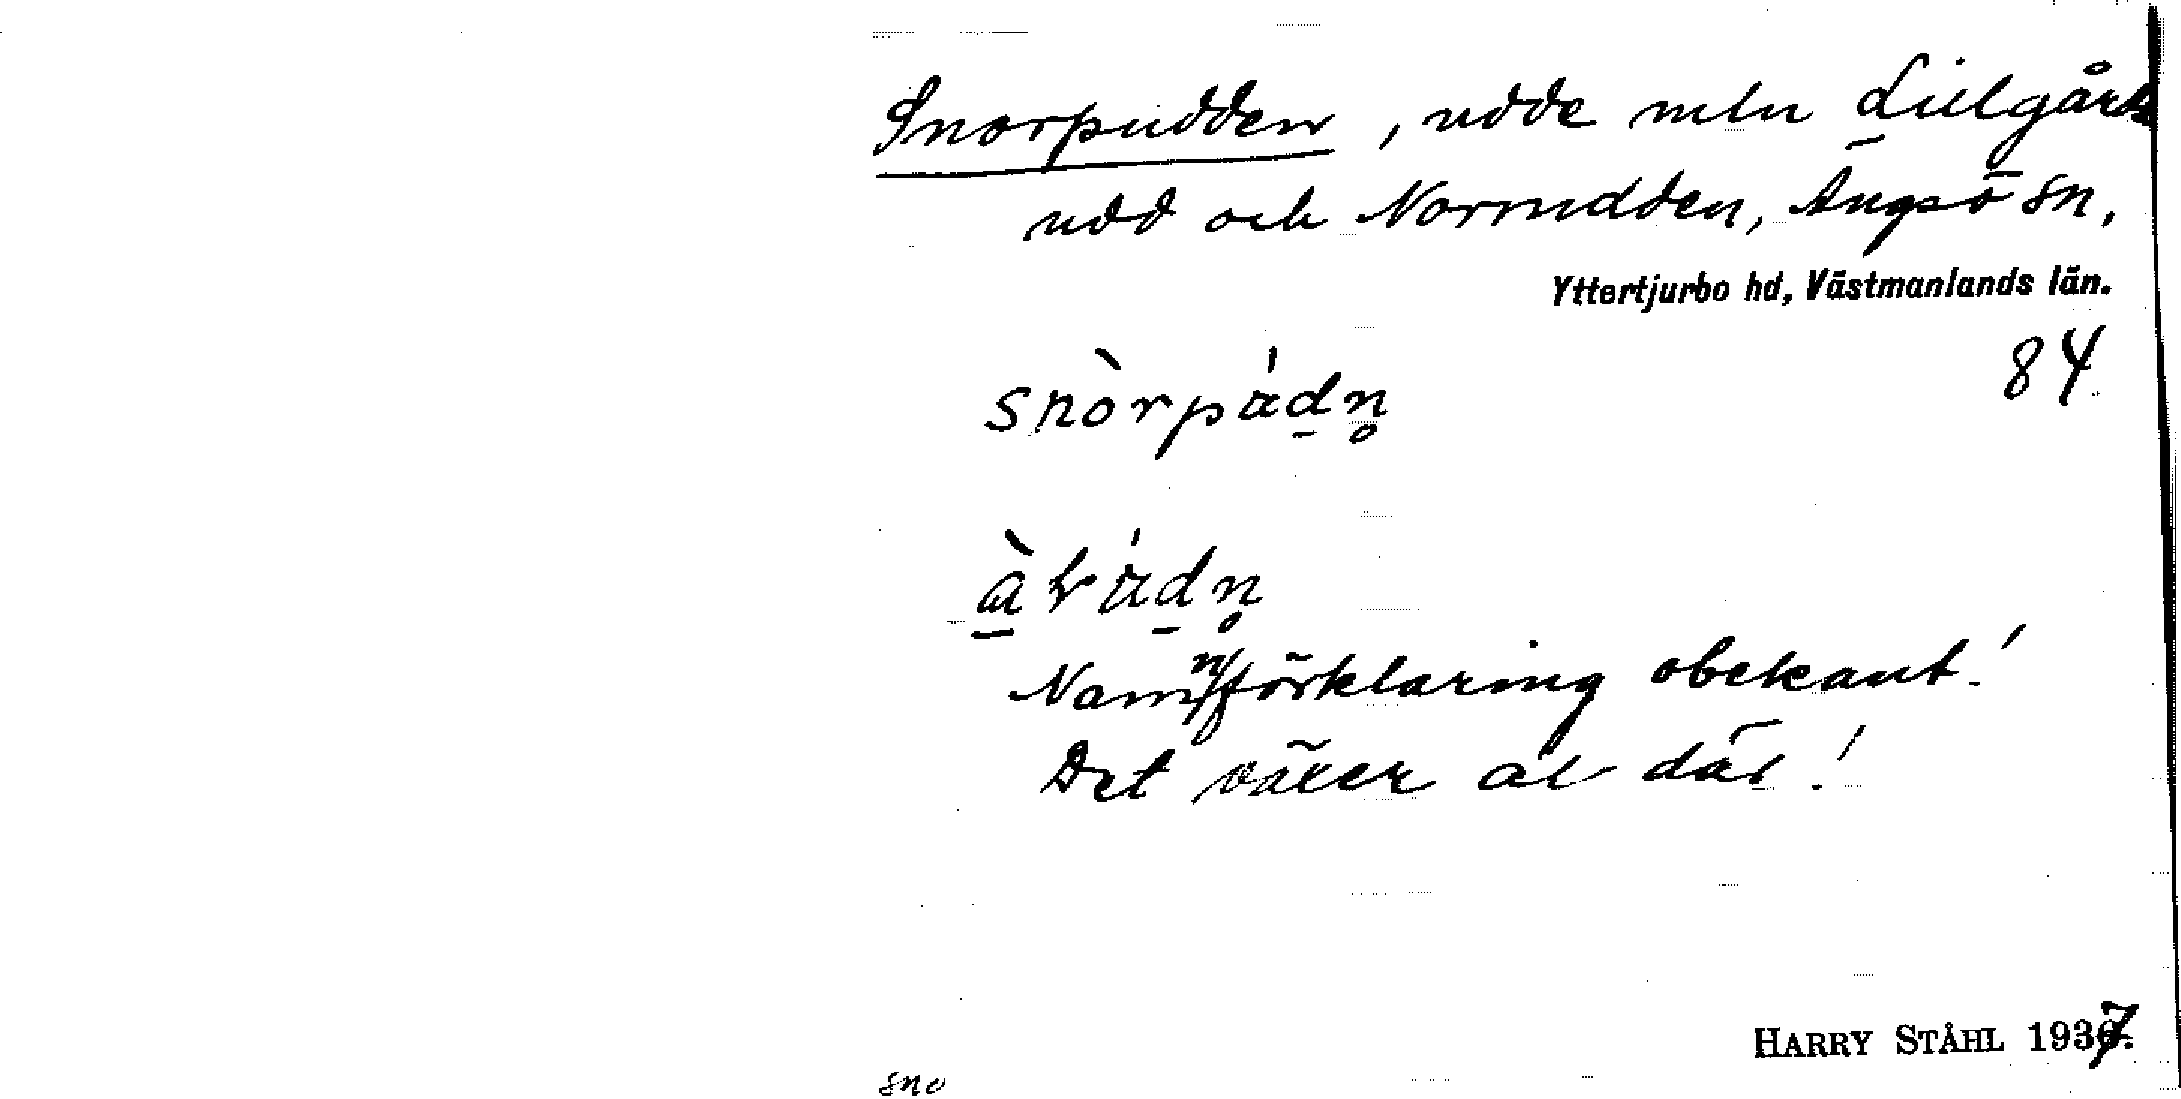 Snorpudden, udde mln Lillgårds
udd och Norrudden, Ängsö sn.
Yttertjurbo hd, Västmanlands län.
84
snòrpádn̥
Namnförklaring obekant!
Det växer al där!
HARRY STÅHL 1937.
sno